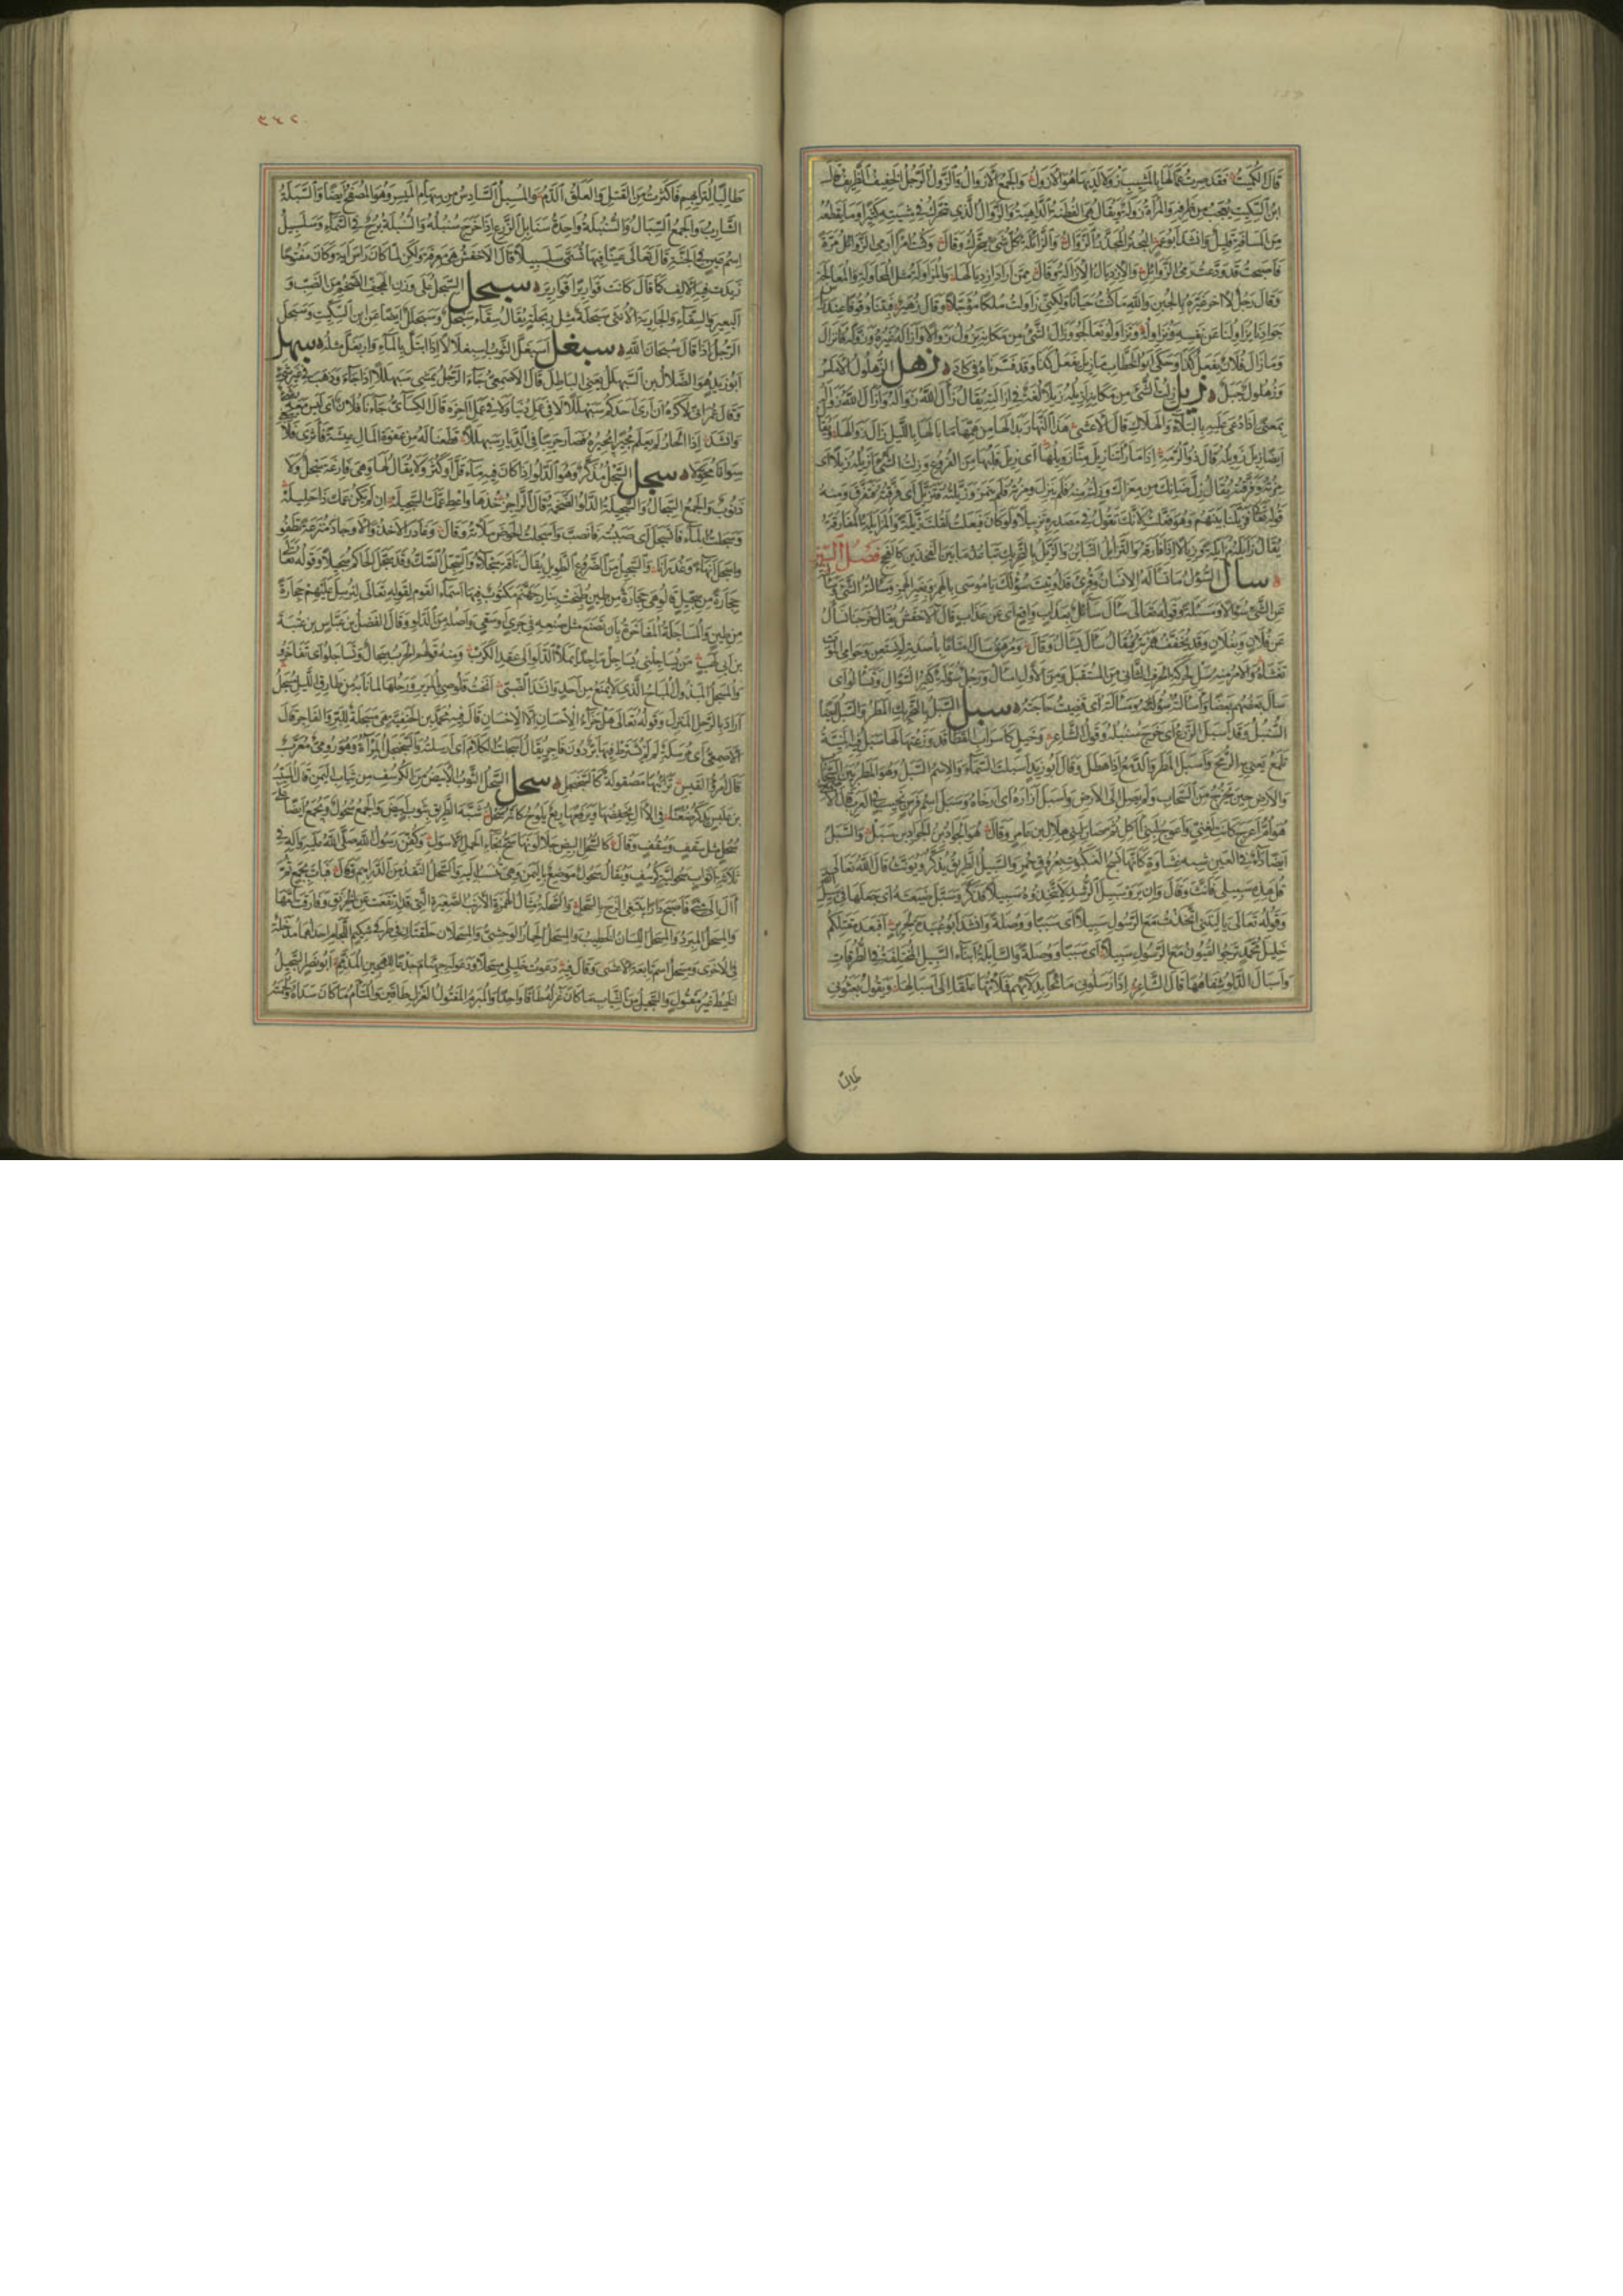 قال الكميت فقد صرت عما لها بالمشيب زولا لديها هو الازول والجمع الازوال والزول الرجل الخفيف الظريف قال
ابن السكيت يعجب من ظرفه والمراة زولة ويقال هي الفطنة الداهية والزوال الذي يتحرك في مشيته كثيرا وما يقطعه
من المسافة قليل وانشد ابو عمرو البحتر المجذر الزوال والزائلة كل شئ يتحرك وقال وكنت امرا ارمي الزوائل مرة
فاصبحت قد ودعت رمي الزوائل والازديال الازالة وقال ممن اراد ازديالها والمزاولة مثل المحاولة والمعالجة
وقال رجل لاخر عيره بالجبن والله ما كنت جبانا ولكني زاولت ملكا مؤجلا وقال زهير فبتنا وقوفا عند
جوادنا يزاولنا عن نفسه ونزاوله وتزاولوا تعالجوا وزال الشئ من مكانه يزول زوالا وازاله غيره وزوله فانزال
وما زال فلان يفعل كذا وحكى ابو الخطاب ما زيل يفعل كذا وقد فسرناه في كاد زهل الزهلول الاملس
وزهلول جبل زيل زلت الشئ من مكانه ازيله زيلا لغة في ازلته يقال زال الله زواله وازال الله زواله
بمعنى اذا دعي عليه بالبلاء والهلاك قال الاعشى هذا النهار بدا لها من همها ما بالها بالليل زال زوالها
ايضا زيل زويله قال ذو الرمة اذا ما راتنا زيل منا زويلها اي زيل قلبها من الفزع وزلت الشئ ازيله زيلا اي
مزته وفرقته يقال زل ضانك من معزاك وزلته منه فلم ينزل ومزته فلم ينمز وزيلته فتزيل اي فرقته فتفرق ومنه
قوله تعالى فزيلنا بينهم وهو فعلت لانك تقول في مصدره تزييلا ولو كان فيعلت لقلت زيلة والمزايلة المفارقة
يقال زايله مزايلة وزيالا اذا فارقه والتزايل التباين والزيل بالتحريك تباعد ما بين الفخذين كالفحج فصل السين
سال السؤل ما يساله الانسان وقرئ قد اوتيت سؤلك يا موسى بالهمز وبغير الهمز وسالته الشئ وسالته
عن الشئ سؤالا ومسئلة وقوله تعالى سال سائل بعذاب واقع اي عن عذاب قال الاخفش يقال خرجنا نسال
عن فلان وبفلان وقد يخفف همزه فيقال سال يسال وقال ومرهق سال امتاعا باصدته لم يستعن وحوامي الموت
تغشاه والامر منه سل بحركة الحرف الثاني من المستقبل ومن الاول اسال ورجل سؤلة كثير السؤال وتساءلوا اي
سال بعضهم بعضا واسالته سؤلته ومسالته اي قضيت حاجته سبل السبل بالتحريك المطر والسبل ايضا
السنبل وقد اسبل الزرع اي خرج سنبله وقول الشاعر وخيل كاسراب القطا قد وزعتها لها سبل فيه المنية
تلمع يعني الرمح واسبل المطر والدمع اذا هطل وقال ابو زيد اسبلت السماء والاسم السبل وهو المطر بين السحاب
والارض حين يخرج من السحاب ولم يصل الى الارض واسبل ازاره اي ارخاه وسبل اسم فرس نجيب في العرب قال الاصمعي
هو ام اعوج كانت لغني واعوج لبني اكل المرار ثم صار لبني هلال بن عامر وقال هو الجواد بن الجواد بن سبل والسبل
ايضا داء في العين شبه غشاوة كانها نسج العنكبوت بعروق حمر والسبيل الطريق يذكر ويؤنث قال الله تعالى
قل هذه سبيلي فانث وقال وان يروا سبيل الرشد لا يتخذوه سبيلا فذكر وسبل ضيعته اي جعلها في سبيل الله
وقوله تعالى يا ليتني اتخذت مع الرسول سبيلا اي سببا ووصلة وانشد ابو عبيدة لجرير افبعد مقتلكم
خليل محمد ترجو القيون مع الرسول سبيلا اي سببا ووصلة والسابلة ابناء السبيل المختلفة في الطرقات
واسبال الدلو شفاهها قال الشاعر اذا ارسلوني ماتحا بدلائهم فملأتها علقا الى اسبالها ويقول بعثوني
طالبا
٣٤٢
طالبا لتراتهم فاكثرت من القتل والعلق الدم والمسبل السادس من سهام الميسر وهو المصفح ايضا والسبلة
الشارب والجمع السبال والسنبلة واحدة سنابل الزرع اذا خرج سنبله والسنبلة برج في السماء وسلسبيل
اسم عين في الجنة قال تعالى عينا فيها تسمى سلسبيلا قال الاخفش هي معرفة ولكن لما كان راس اية وكان مفتوحا
زيدت فيه الالف كما قال كانت قواريرا قواريرا سبحل السبحل على وزن الهجف الضخم من الضب و
البعير والسقاء والجارية الانثى سبحلة مثل ربحلة يقال سقاء سبحل وسبحلل ايضا عن ابن السكيت وسبحل
الرجل اذا قال سبحان الله سبغل اسبغل الثوب اسبغلالا اذا ابتل بالماء وازبعل مثله سبهل
ابو زيد هو الضلال بن السبهلل يعني الباطل قال الاصمعي جاء الرجل يمشي سبهللا اذا جاء وذهب في غير شئ
وقال عمر اني لاكره ان ارى احدكم سبهللا لا في عمل دنيا ولا في عمل اخرة قال الكسائي جاءنا فلان اي ليس معه شئ
وانشد اذا الجار لم يعلم مجيرا يجيره فصار حريبا في الديار سبهللا قطعنا له من عفوة المال عيشة فاثرى فلا
سوانا محولا سجل السجل مذكر وهو الدلو اذا كان فيه ماء قل او كثر ولا يقال لها وهي فارغة سجل ولا
ذنوب والجمع السجال والسجيلة الدلو الضخمة قال الراجز خذها واعط عمك السجيلة ان لم يكن عمك ذا حليلة
وسجلت الماء فانسجل اي صببته فانصب واسجلت الحوض ملاته وقال وغادر الاخذ والاوجاذ مترعة تطفو
واسجل انهاء وغدرانا والسجيل من الضروع الطويل يقال ناقة سجلاء والسجل الصك وقد سجل الحاكم تسجيلا وقوله تعالى
حجارة من سجيل قالوا هي حجارة من طين طبخت بنار جهنم مكتوب فيها اسماء القوم لقوله تعالى لنرسل عليهم حجارة
من طين والمساجلة المفاخرة بان تصنع مثل صنعه في جري او سقي واصله من الدلو وقال الفضل بن عباس بن عتبة
بن ابي لهب من يساجلني يساجل ماجدا يملا الدلو الى عقد الكرب ومنه قولهم الحرب سجال وتساجلوا اي تفاخروا
والمسجل المبذول المباح الذي لا يمنع من احد وانشد الضبي انخت قلوصي بالمرير ورحلها لما نابه من طارق الليل مسجل
اراد بالرحل المنزل وقوله تعالى هل جزاء الاحسان الا الاحسان قال فيه محمد بن الحنفية هي مسجلة للبر والفاجر قال
الاصمعي اي مرسلة لم يشترط فيها بر دون فاجر يقال اسجلت الكلام اي ارسلته والسجنجل المراة وهو رومي معرب
قال امرؤ القيس ترائبها مصقولة كالسجنجل سحل السحل الثوب الابيض من الكرسف من ثياب اليمن قال المسيب
بن علس يذكر ظعنا في الال يخفضها ويرفعها ريع يلوح كانه سحل شبه الطريق بثوب ابيض والجمع سحول ويجمع ايضا على
سحل مثل سقف وسقف وقال كالسحل البيض جلا لونها سح نجاء الحمل الاسول وكفن رسول الله صلى الله عليه واله في
ثلاثة اثواب سحولية كرسف ويقال سحول موضع باليمن وهي تنسب اليه والسحل النقد من الدراهم وقال فبات بجمع ثم
آل الى منى فاصبح رادا يبتغي المزج بالسحل والسحلة مثال الهمزة الارنب الصغيرة التي قد ارتفعت عن الخرنق وفارقت امها
والمسحل المبرد والمسحل اللسان الخطيب والمسحل الحمار الوحشي والمسحلان حلقتان في طرفي شكيم اللجام احداهما مدخلة
في الاخرى ومسحل اسم تابعة الاعشى وقال فيه دعوت خليلي مسحلا ودعوا له جهنام جدعا للهجين المذمم ابو نصر السحيل
الخيط غير مفتول والسحيل من الثياب ما كان غزله طاقا واحدا والمبرم المفتول الغزل طاقين والمتام ما كان سداه ولحمته